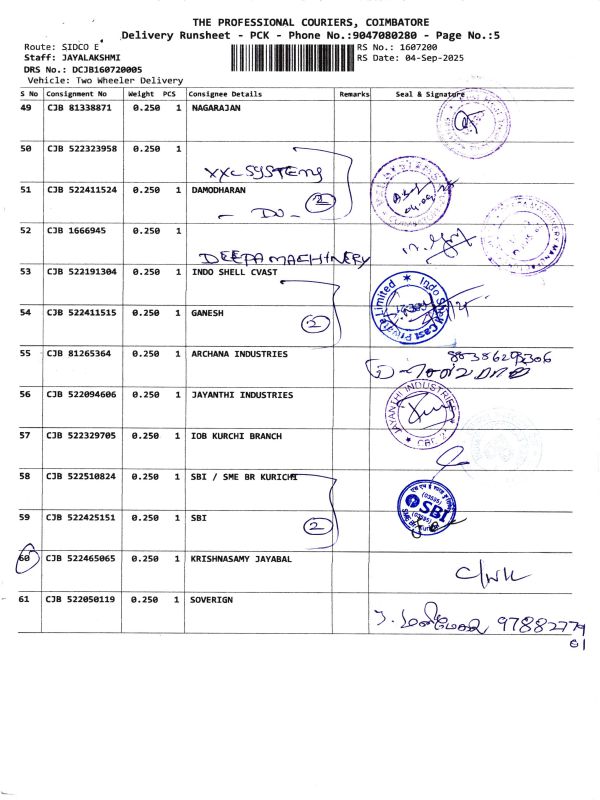 THE PROFESSIONAL COURIERS, COIMBATORE
Delivery Runsheet - PCK - Phone No.:9047080280 - Page No.:5
Route: SIDCO E
RS No.: 1607200
Staff: JAYALAKSHMI
RS Date: 04-Sep-2025
DRS No.: DCJB160720005
Vehicle: Two Wheeler Delivery
S No Consignment No Weight PCS Consignee Details Remarks Seal & Signature
49 CJB 81338871 0.250 1 NAGARAJAN
50 CJB 522323958 0.250 1
XXL SYSTEMS
51 CJB 522411524 0.250 1 DAMODHARAN
- DO - 2
52 CJB 1666945 0.250 1
DEEPA MACHINERY
53 CJB 522191304 0.250 1 INDO SHELL CVAST
Indo Shell Cast Private Limited
54 CJB 522411515 0.250 1 GANESH
2
55 CJB 81265364 1 0.250 1 ARCHANA INDUSTRIES
56 CJB 522094606 0.250 1 JAYANTHI INDUSTRIES
JAYANTHI INDUSTRIES
57 CJB 522329705 0.250 1 IOB KURCHI BRANCH
58 CJB 522510824 0.250 1 SBI / SME BR KURICHI
SBI
59 CJB 522425151 0.250 1 SBI
2
60 CJB 522465065 0.250 1 KRISHNASAMY JAYABAL
61 CJB 522050119 0.250 1 SOVERIGN
97882779
61